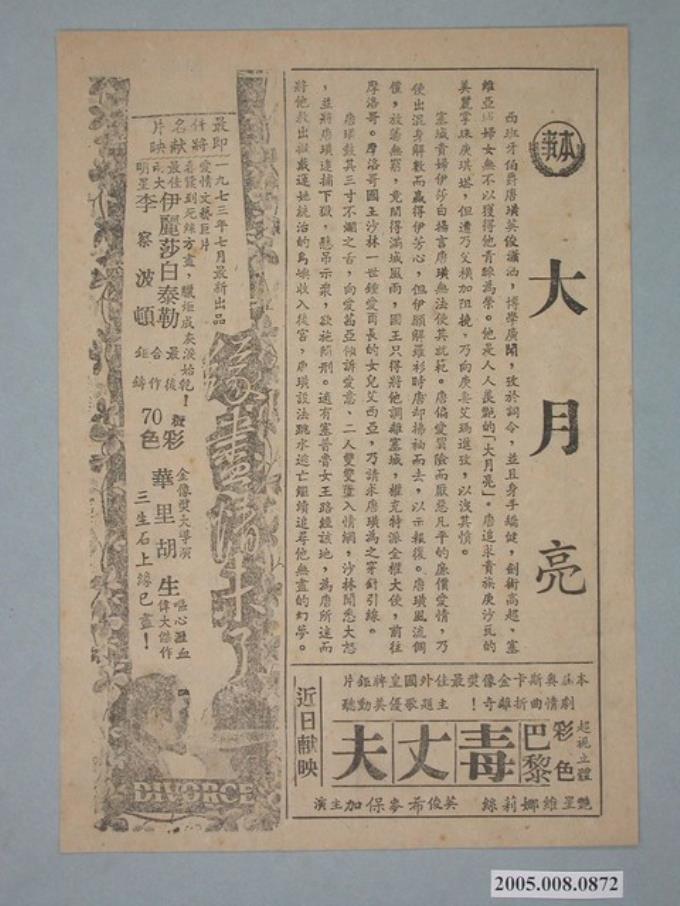 本事
大月亮
西班牙伯爵唐璜英俊瀟洒，博學廣聞，攻於詞令，並且身手矯健，劍術高超，塞
維亞城婦女無不以獲得他青睞為榮。他是人人羨艷的「大月亮」。唐追求貴族庚沙瓦的
美麗掌珠庚琪塔，但遭乃父橫加阻撓，乃向庚妻艾瑪進攻，以洩其憤。
塞城貴婦伊莎白揚言唐璜無法使其就範。唐偏愛冒險而厭惡凡平的廉價愛情，乃
使出混身解數而贏得伊芳心，但伊願解羅衫時唐却拂袖而去，以示報復。唐璜風流倜
儻，放蕩無羈，竟鬧得滿城風雨，國王只得將他調離塞城，權克特派全權大使，前往
摩洛哥。摩洛哥國王沙林一世鍾愛酉長的女兒艾西亞，乃請求唐璜為之穿針引線。
唐璜鼓其三寸不爛之舌，向愛葛亞傾訴愛意，二人雙雙墮入情網，沙林聞悉大怒
，並將唐璜逮捕下獄，懸吊示眾，欲施閹刑。適有塞普魯女王路經該地，為唐所迷而
將他救出擬載運她統治的島嶼收入後宮，唐璜設法跳水逃亡繼續追尋他無盡的幻夢。
本片鉅牌皇國外佳最獎像金卡斯奧
莊劇情曲折離奇！主題歌優美動聽
超視立體
彩色
巴黎
毒丈夫
艷星維娜莉絲 英俊希麥保加主演
近日献映
最佳名片
即將献映
一九七三年七月最新出品
愛情文藝巨片
春蠶到死絲方盡，蠟炬成灰淚始乾！
最佳兩大明星
伊麗莎白泰勒
李察波頓
最後合作鉅鑄
70彩色
緣盡情未了
金像獎大導演
華里胡生
嘔心瀝血
偉大傑作
三生石上緣已盡！
DIVORCE
2005.008.0872